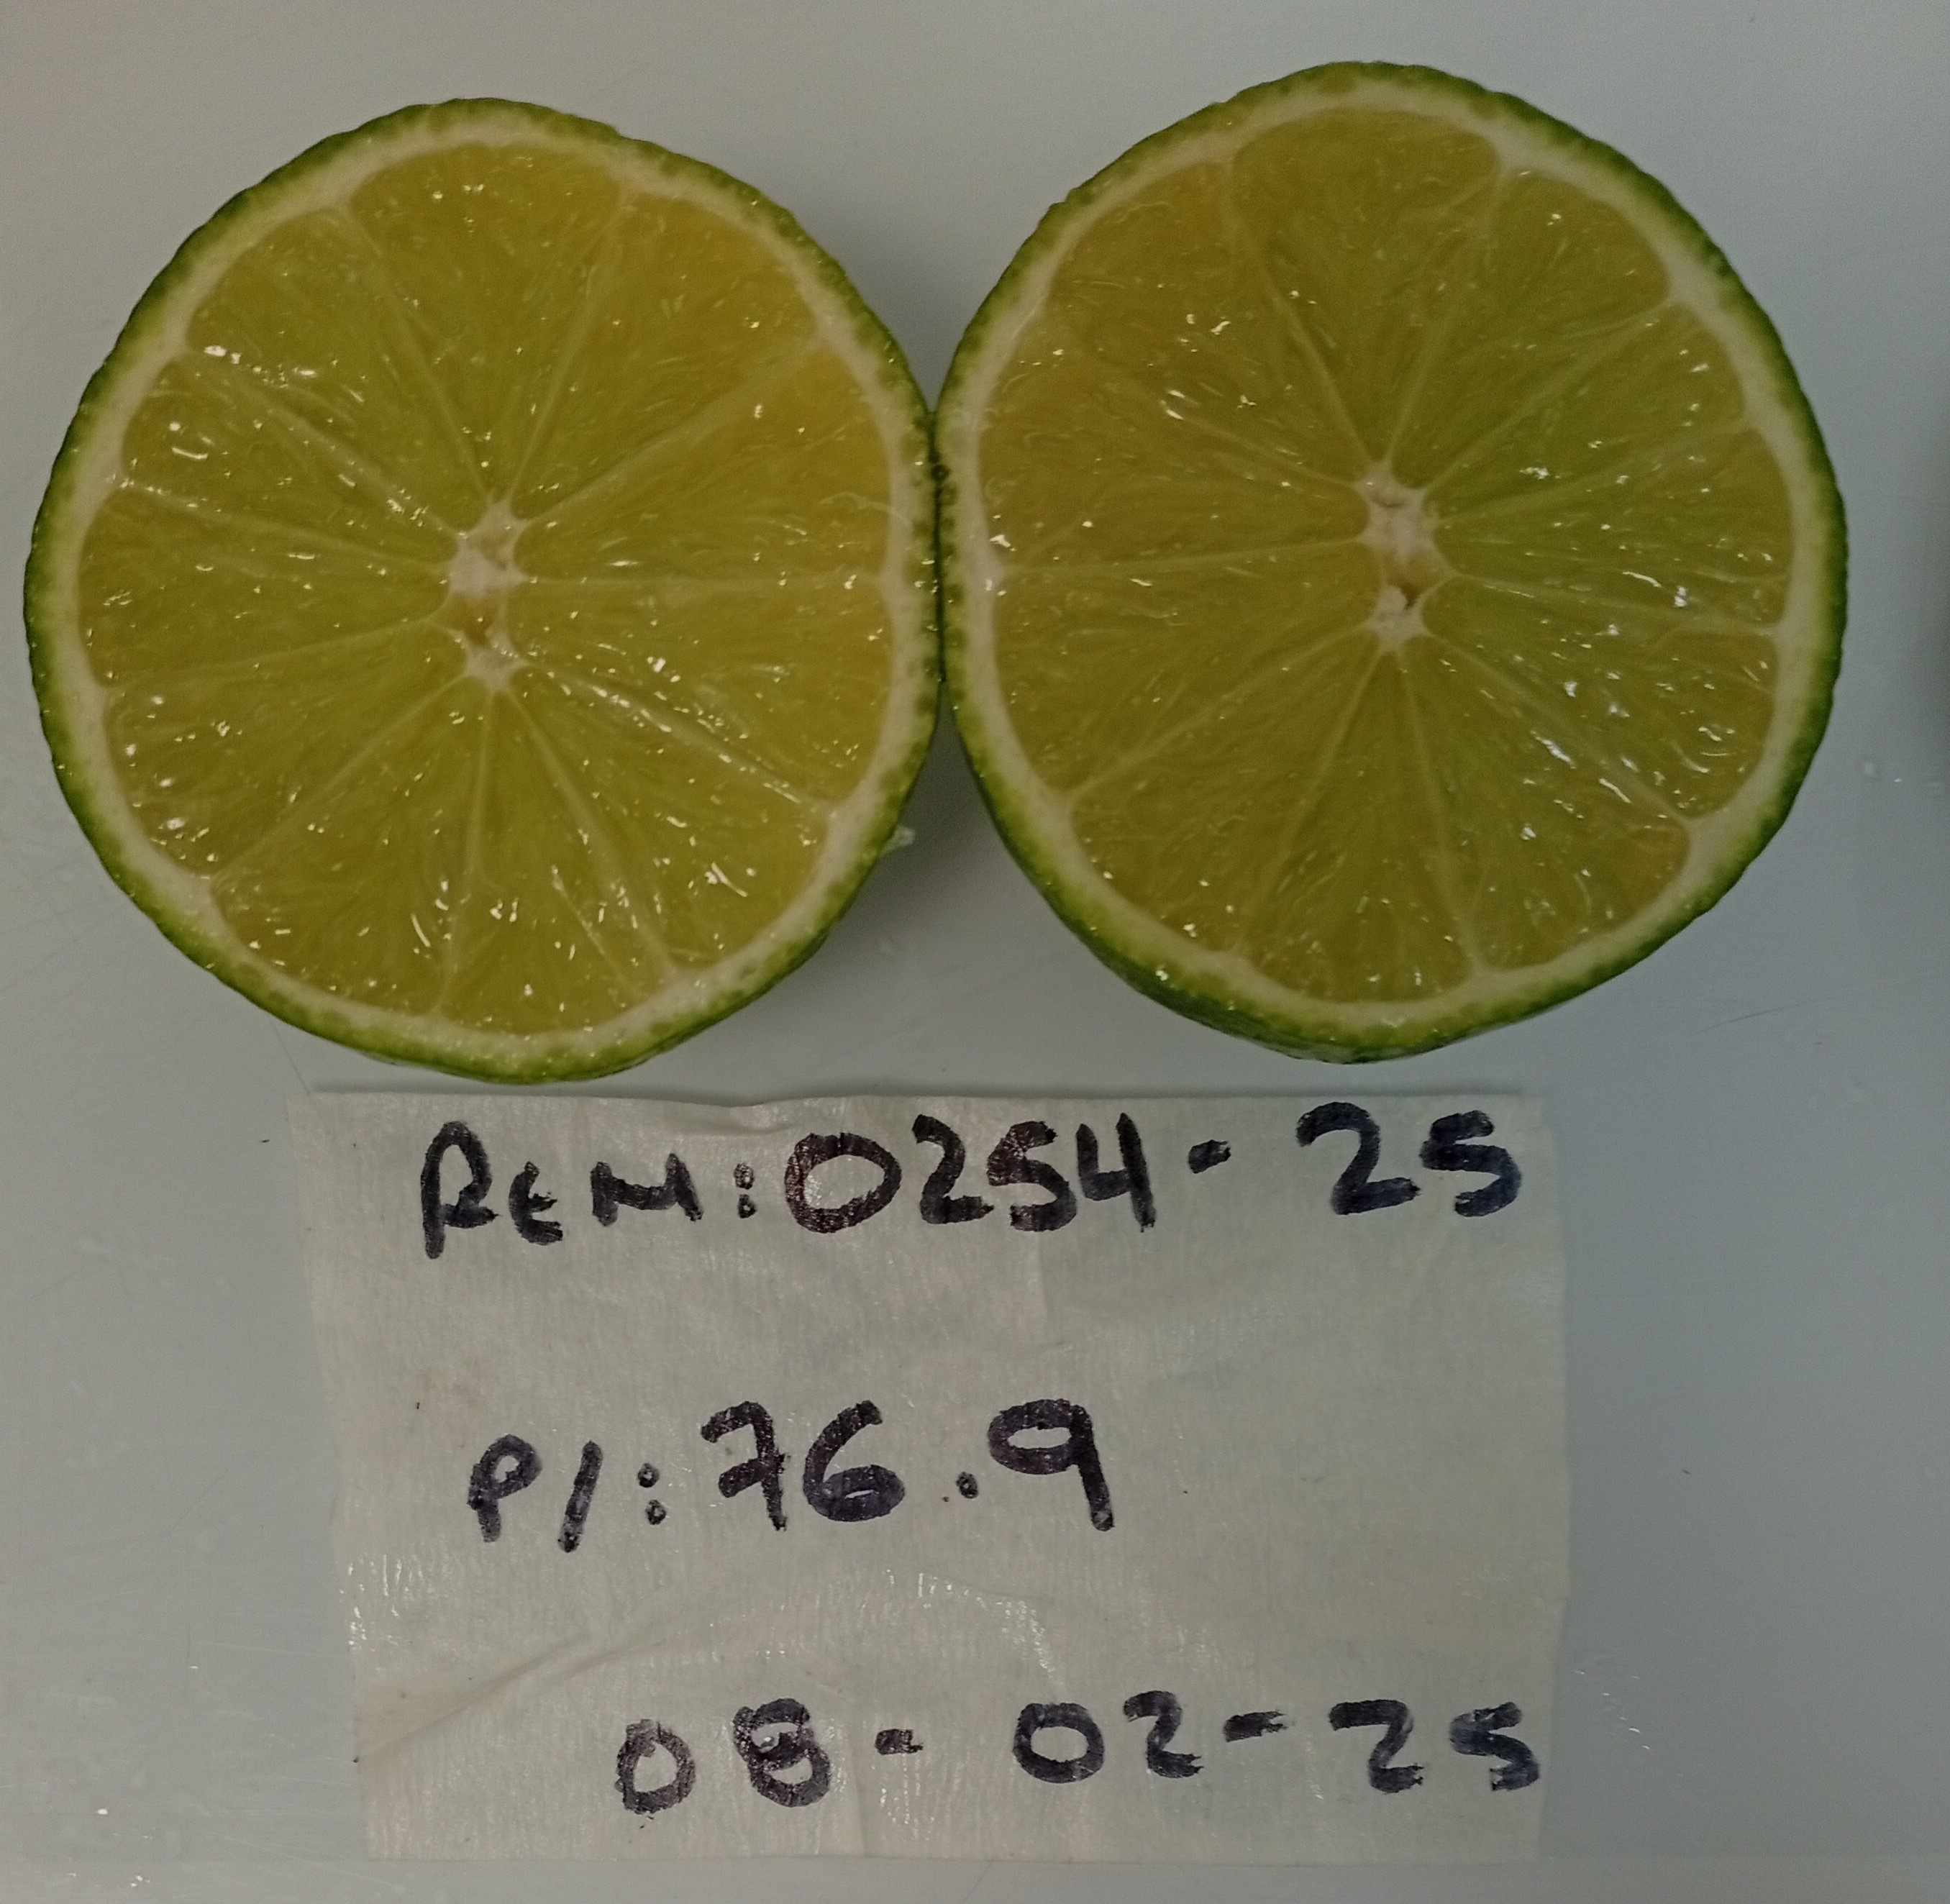 REM:0254-25
P/:76.9
08-02-25